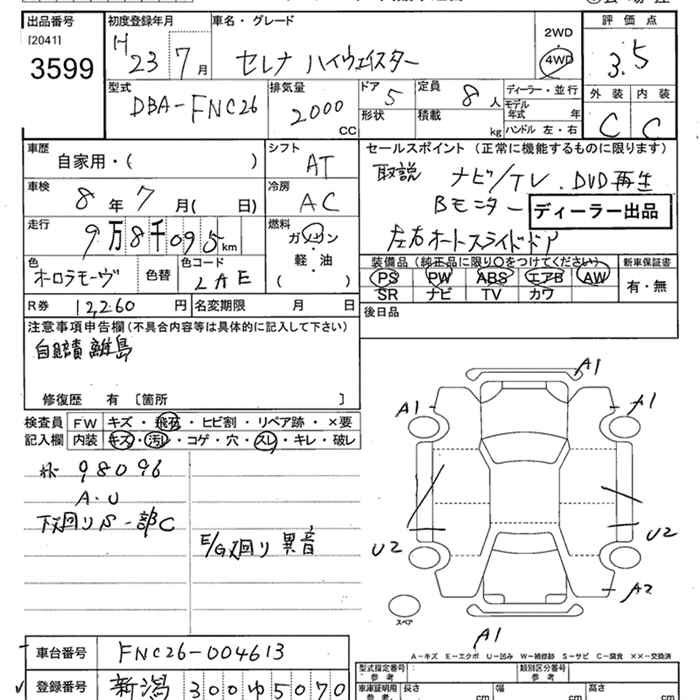 出品番号 初度登録年月 車名・グレード 評価点
[2041] H 2WD
3599 23 7月 セレナ ハイウェイスター 4WD 3.5
型式 排気量 ドア 定員 ディーラー・並行 外装 内装
DBA-FNC26 2000 CC 5 8人 モデル年式 年 C C
形状 積載 kg ハンドル 左・右
車歴 シフト セールスポイント (正常に機能するものに限ります)
自家用・( ) AT 取説 ナビ/TV.DVD再生
車検 冷房 Bモニター ディーラー出品
8年7月( 日) AC
走行 燃料 左右オートスライドドア
9万8千095km ガソリン
色 色替 色コード 軽・油 装備品(純正品に限り○をつけてください) 新車保証書
オーロラモーヴ LAE ( ) PS PW ABS エアB AW 有・無
SR ナビ TV カワ
R券 12,260円 名変期限 月 日 後日品
注意事項申告欄(不具合内容等は具体的に記入して下さい)
自賠責離島
修復歴 有 [箇所 ]
検査員 FW キズ・飛石・ヒビ割・リペア跡・×要
記入欄 内装 キズ・汚レ・コゲ・穴・スレ・キレ・破レ
98096
A・U
下廻りS一部C
E/G廻り異音
A1
A1
A1
U2
U2
A2
スペア
A1
A-キズ E-エクボ U-凹み W-補修跡 S-サビ C-腐食 ××-交換済
車台番号 FNC26-004613 型式指定番号 参考 類別区分番号 参考
登録番号 新潟300ゆ5070 車庫証明用 参考 長さ cm 幅 cm 高さ cm